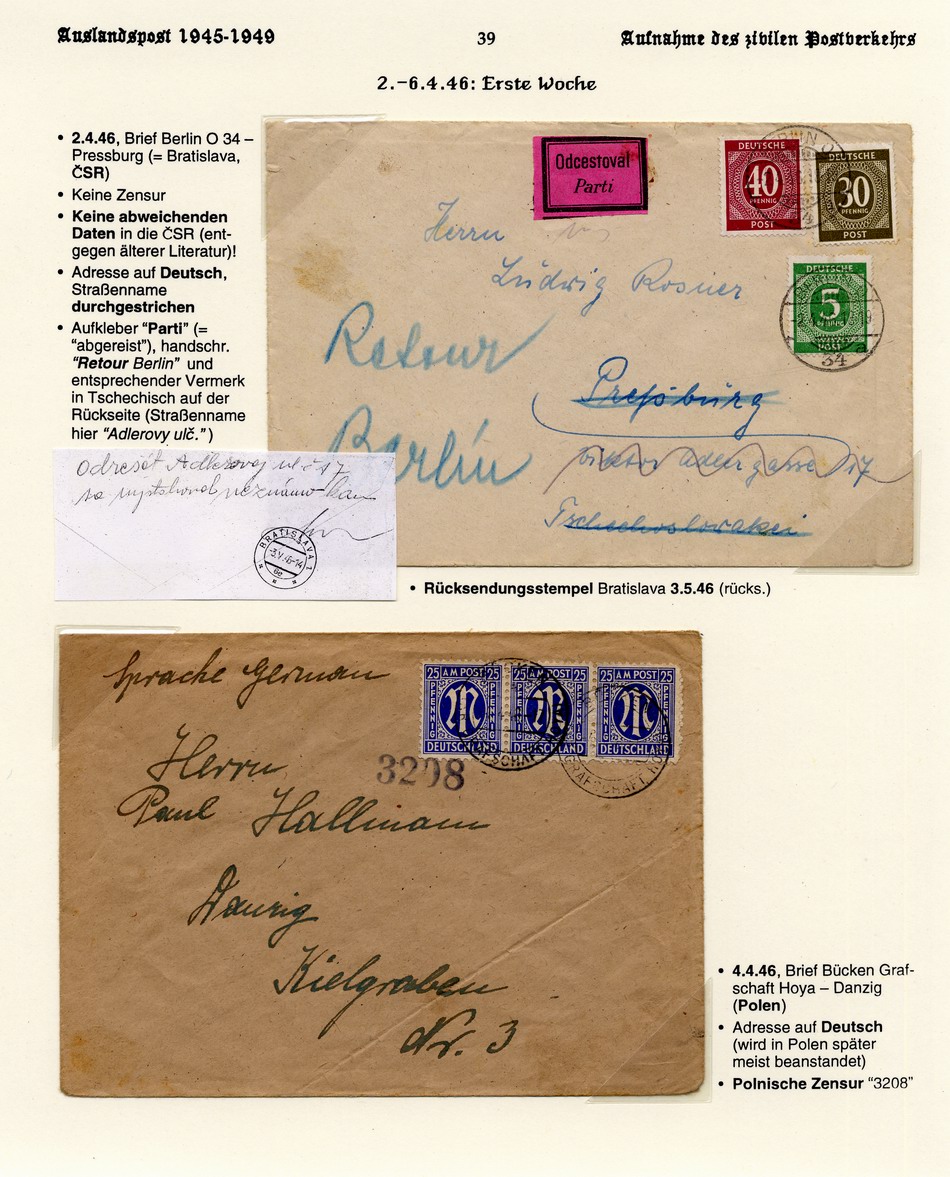 Auslandspost 1945-1949
39
Aufnahme des zivilen Postverkehrs
2.–6.4.46: Erste Woche
• 2.4.46, Brief Berlin O 34 –
Pressburg (= Bratislava,
ČSR)
• Keine Zensur
• Keine abweichenden
Daten in die ČSR (ent-
gegen älterer Literatur)!
• Adresse auf Deutsch,
Straßenname
durchgestrichen
• Aufkleber “Parti” (=
“abgereist”), handschr.
“Retour Berlin” und
entsprechender Vermerk
in Tschechisch auf der
Rückseite (Straßenname
hier “Adlerovy ulč.”)
Odcestoval
Parti
DEUTSCHE
40
PFENNIG
POST
DEUTSCHE
30
PFENNIG
POST
DEUTSCHE
5
PFENNIG
POST
34
a
Herrn
Ludwig Rosner
Retour
Berlin
Preßburg
Viktor Adlergasse 17
Tschechoslowakei
Adlerovej ul č 17
sa
BRATISLAVA 1
-3.V.46-14
• Rücksendungsstempel Bratislava 3.5.46 (rücks.)
Sprache German
25 AM POST 25
PFENNIG PFENNIG
DEUTSCHLAND
25 AM POST 25
PFENNIG PFENNIG
DEUTSCHLAND
25 AM POST 25
PFENNIG PFENNIG
DEUTSCHLAND
GRAFSCHAFT
GRAFSCHAFT HOYA
3208
Herrn
Paul Hallmann
Danzig
Kielgraben
Nr. 3
• 4.4.46, Brief Bücken Graf-
schaft Hoya – Danzig
(Polen)
• Adresse auf Deutsch
(wird in Polen später
meist beanstandet)
• Polnische Zensur “3208”